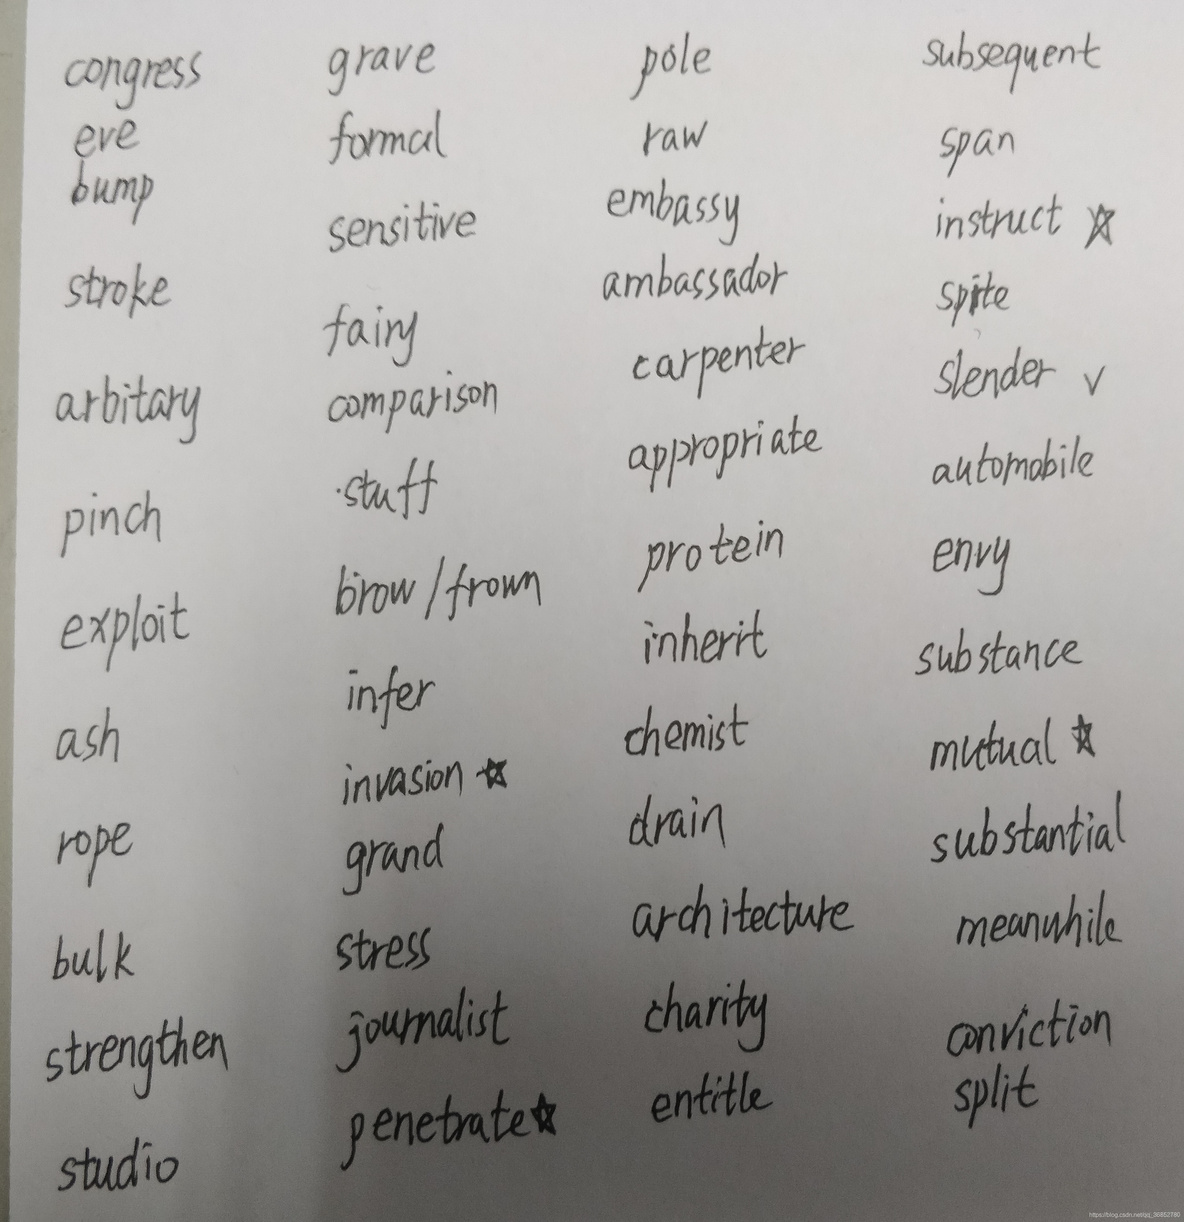 congress
eve
bump
stroke
arbitary
pinch
exploit
ash
rope
bulk
strengthen
studio
grave
formal
sensitive
fairy
comparison
stuff
brow/frown
infer
invasion ☆
grand
stress
journalist
penetrate ☆
pole
raw
embassy
ambassador
carpenter
appropriate
protein
inherit
chemist
drain
architecture
charity
entitle
subsequent
span
instruct ☆
spite
slender √
automobile
envy
substance
mutual ☆
substantial
meanwhile
conviction
split
https://blog.csdn.net/qq_36852780